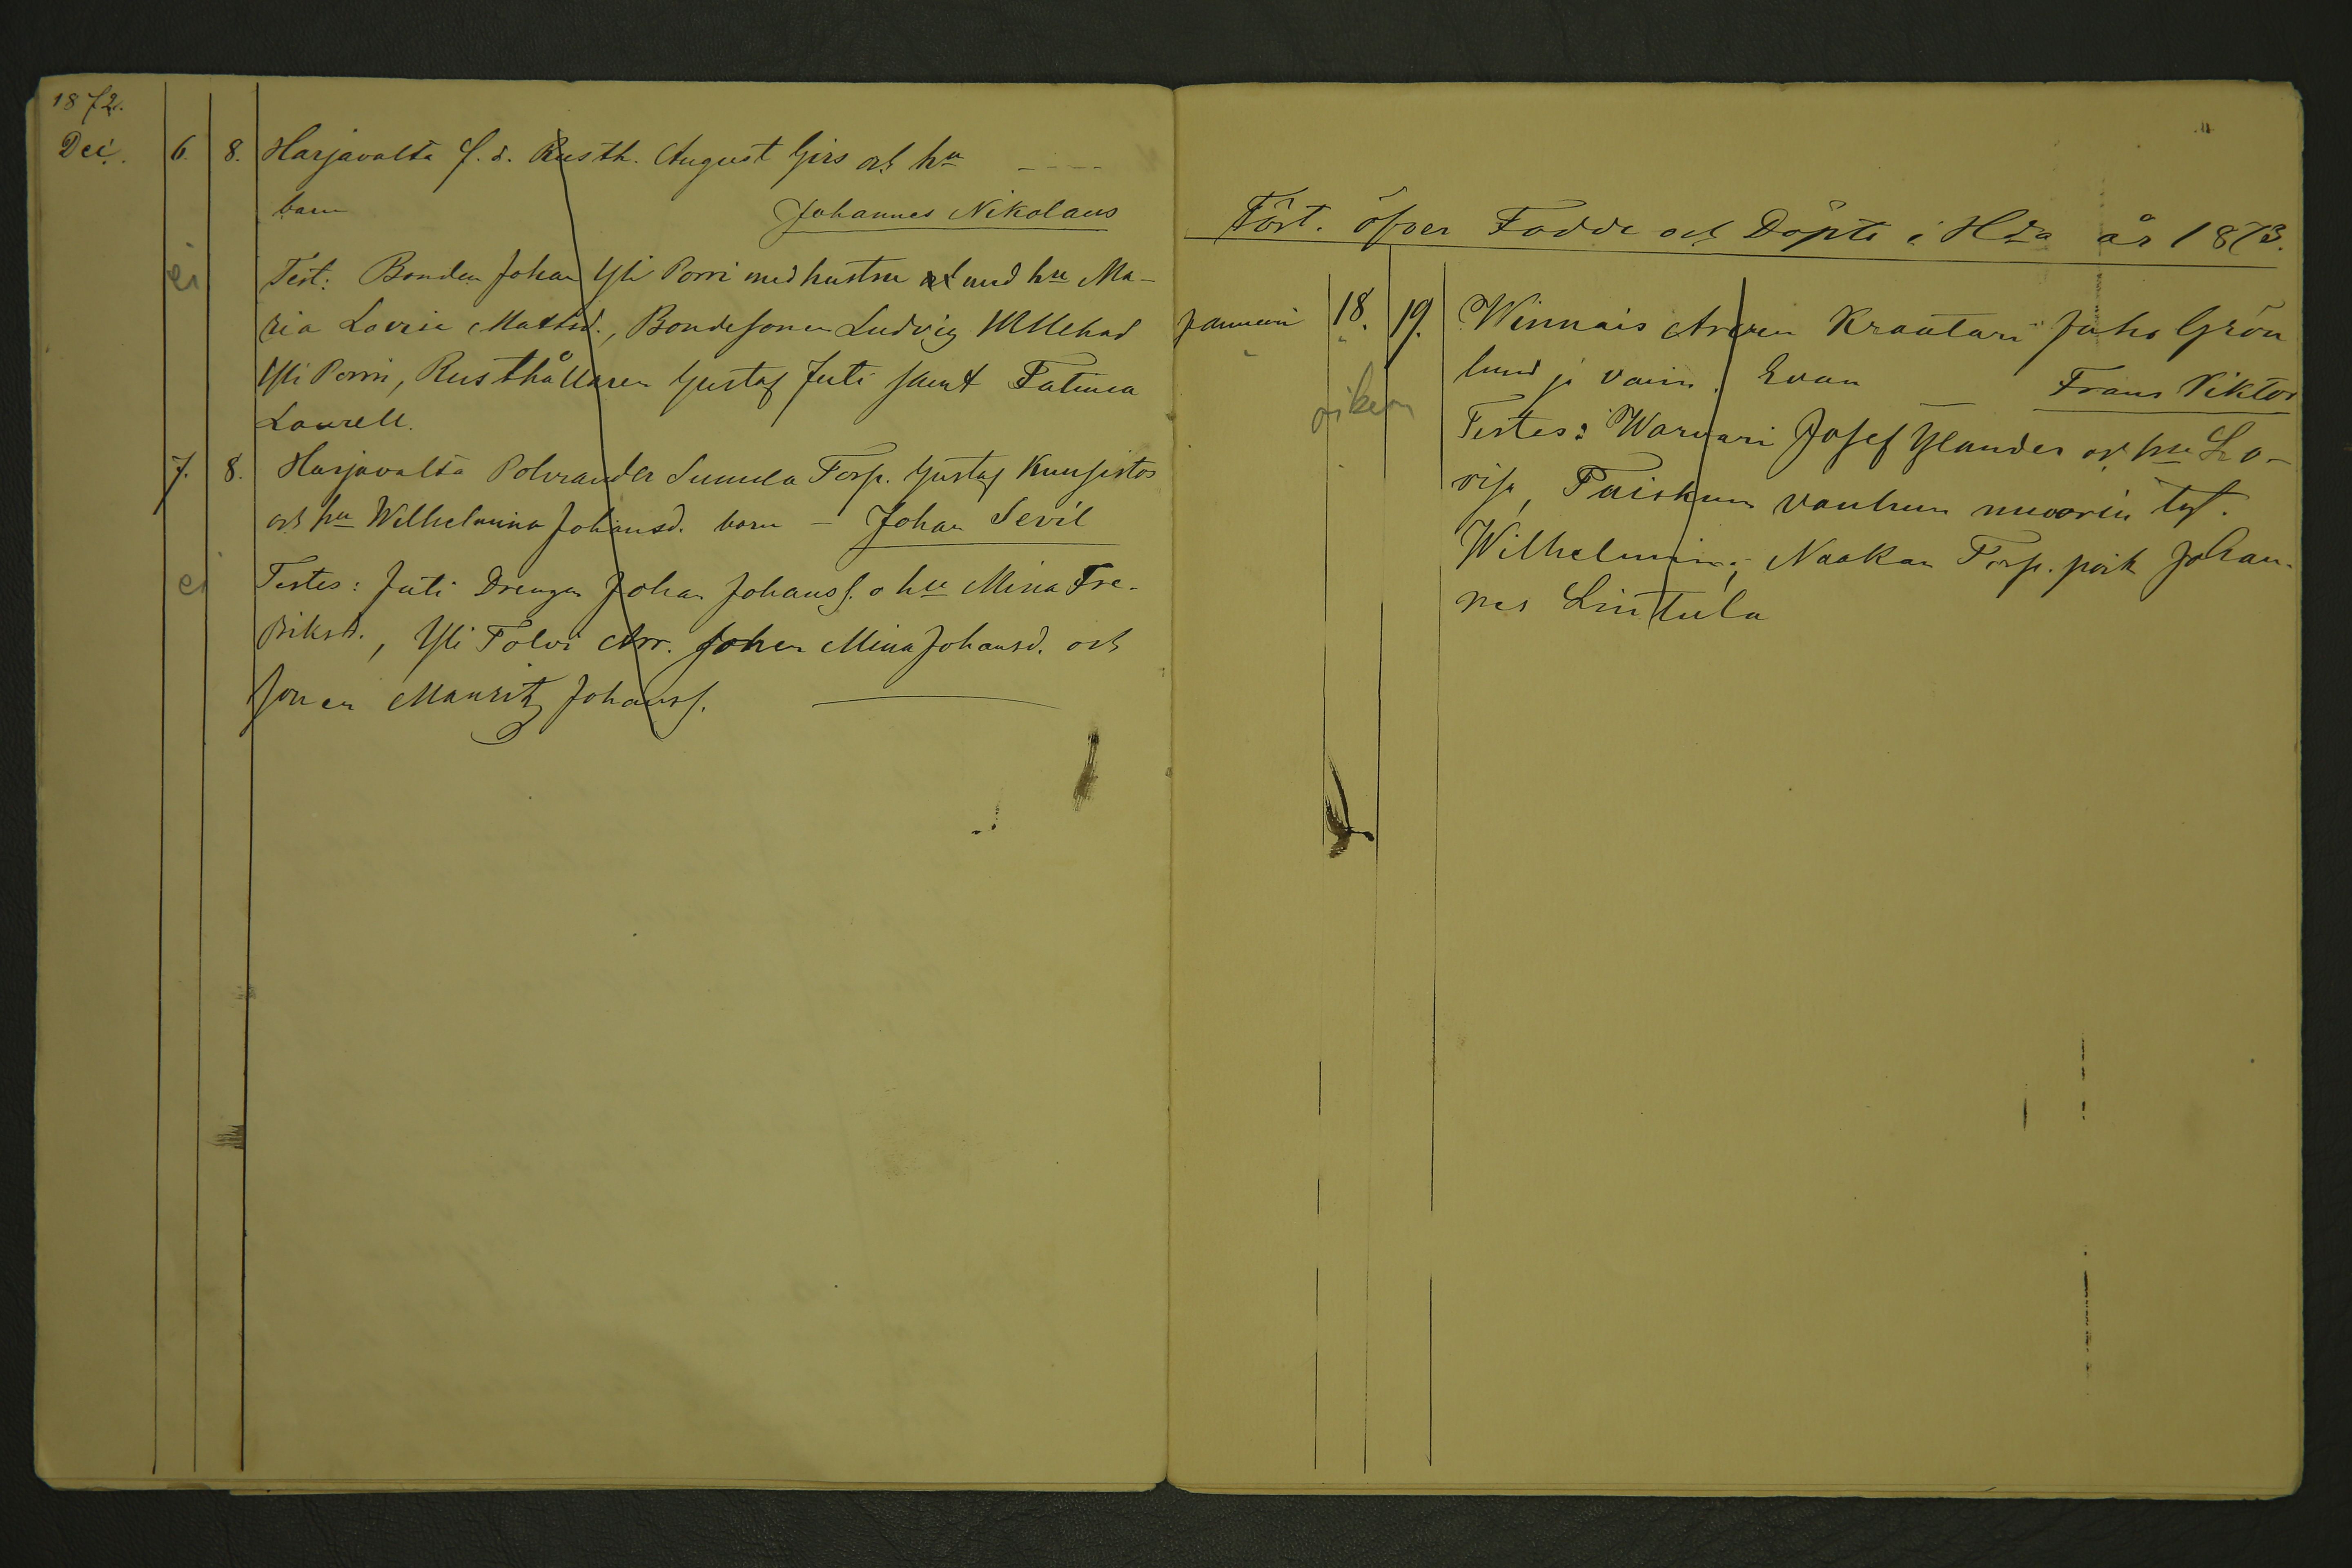 1872.
Dec. 6. 8. Harjavalta f. d. Rusth. August Girs och hu
barn Johannes Nikolaus
ei
Test: Bonden Johan Yli Porri med hustru med hu Ma-
ria Lovisa Mattsd., Bondesonen Ludvig
Yli Porri, Rusthållaren Gustaf Juti samt Fatima
Laurell.
7. 8. Harjavalta Torp. Gustaf Kuusistos
och hu Wilhelmina Johansd. barn – Johan Sevil
ei
Testes: Juti Drengen Johan Johanss. o hu Mina Fre-
driksd., Yli Tolvi Arr. Mina Johansd. och
sonen Mauritz Johanss.
Fört. öfver Födde och Döpte i Hda år 1873.
Januari 18. 19. Winnais Krantari Juho Grön
lund ja vaim. Evan Frans Viktor
Testes: Warvari Josef Ylander och hu Lo-
visa, Paiskun vanhun nuorin tyt.
Wilhelmina, Naakan Torp. poik Johan-
nes Lintula